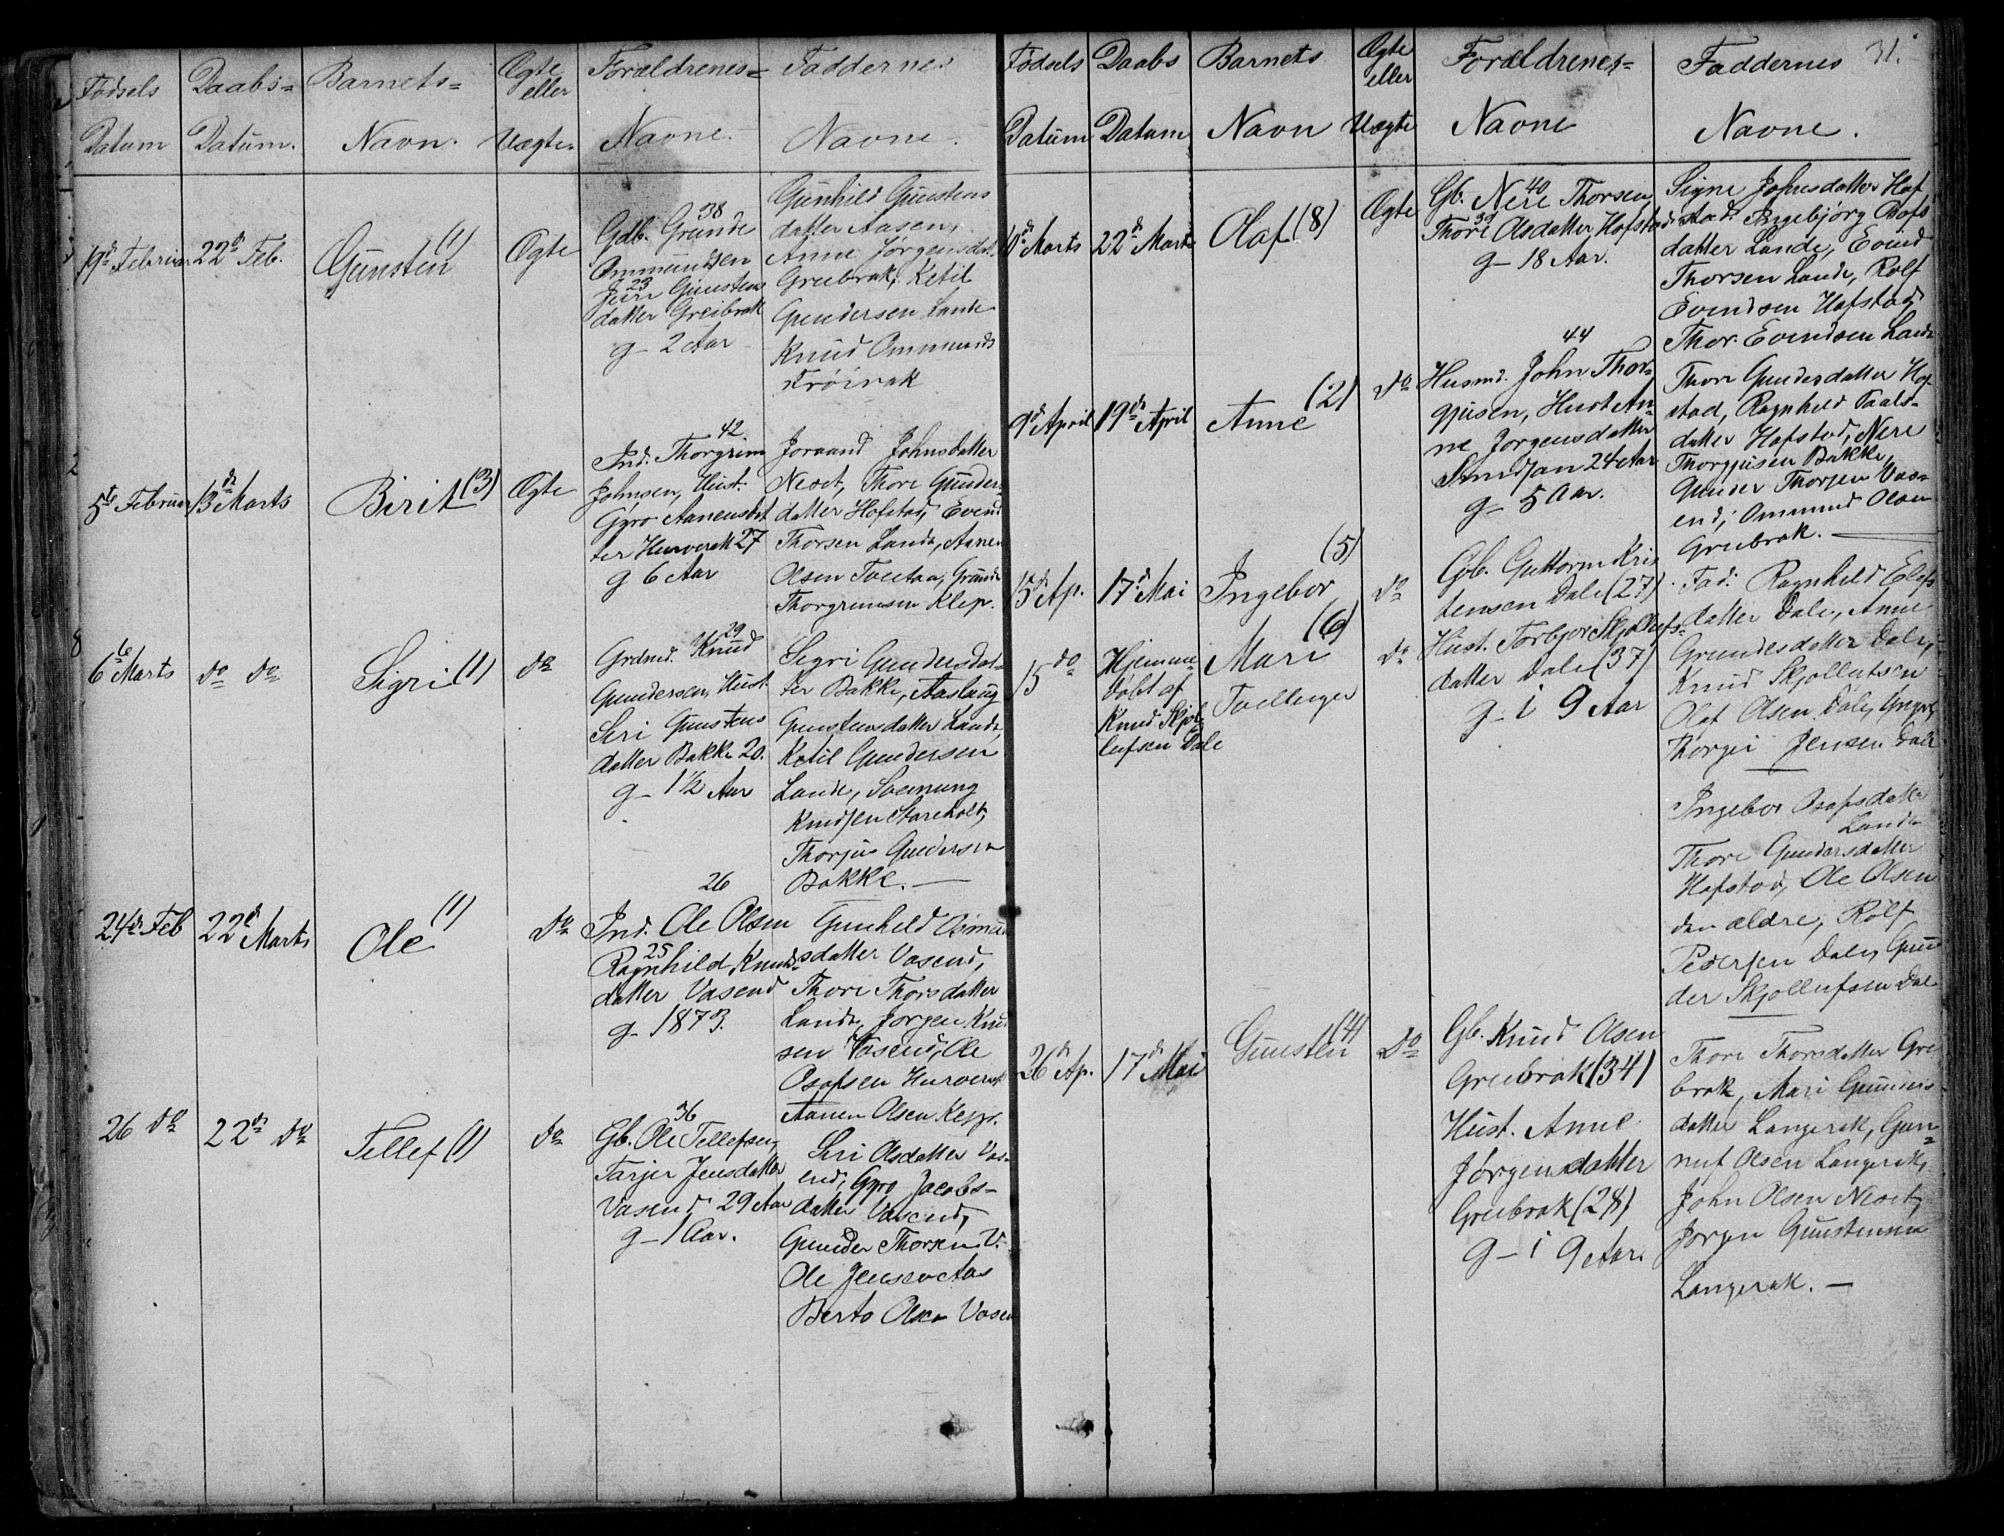 Fødsels Daabs= Barnets= Ægte Forældrenes= Faddernes
eller
Datum Datum. Navn. Uægte. Navne. Navne.
19d Februar 22d Feb. Gunsten (1) Ægte
Gdb. Grunde 38
Ommundsen
Siri Gunstens 23
datter Greibrok
g– 2 Aar
Gunhild Gunstens
datter Aasen,
Anne Jørgensdat.
Greibrok, Ketil
Gundersen Lande
Knud Ommunds
Frøirak
5te Februar 8d Marts Birit (3) Ægte
Ind. Thorgrim 42
Johnsen, Hust.
Gyro Aanensdat
ter Hurverak 27
g 6 Aar
Joraand Johnsdatter
Neset, Thore Gunders
datter Hofstad, Evend
Thorsen Lande, Aanen
Olsen Tveitaa, Grunde
Thorgrimsen Klep.
6te Marts do do Sigri (1) do
Grdmd. Knud 29
Gundersen, Hust.
Siri Gunstens
datter Bakke 20.
g– 1½ Aar
Sigri Gundersdat=
ter Bakke, Aaslaug
Gunstensdatter Lande,
Ketil Gundersen
Lande, Salmung
Knudsen Stareholt,
Thorjus Gundersen
Bakke. —
24d Feb 22d Marts Ole (1) do
26
Ind. Ole Olsen
Ragnhild Knuds= 25
datter Vasend
g– 1873.
Gunhild Osmun
sdatter Vasend,
Thore Thorsdatter
Lande, Jørgen Knud
sen Vasend, Ole
Osofsen Hurverak
Aanen Olsen
26 do 22d do Tellef (1) do
Gb. Ole Tellefsen 36
Tarjer Jensdatter
Vasend 29 Aar
g– 1 Aar.
Siri Olsdatter Vas=
end, Gyro Jacobs=
datter Vasend,
Gunder Thorsen V.
Ole Jensen Aas
Berto Olsen Vasen
31.
Fødsels Daabs Barnets Ægte Forældrenes= Faddernes
eller
Datum Datum Navn Uægte Navne Navne.
10d Marts 22d Marts Olaf (8) Ægte
Gb. Nere Thorsen, 40
Thore Olsdatter Hofstad 39
g– 18 Aar.
Signe Johnsdatter Hof
stad. Ingebjørg Osofs
datter Lande, Evend
Thorsen Lande, Rolf
Evendsen Hofstad,
Thor Evendsen Lande
9d April 19d April Anne (2) do
44
Husmd. John Thor=
gjusen, Hust An=
ne Jørgensdatter
24 Aar
g– 5 Aar.
Thore Gundersdatter Hof
stad, Ragnhild Taals=
datter Hofstad, Nere
Thorgjusen Bakke,
Gunder Thorsen Vas=
end, Ommund Olsen
Greibrok. —
15d Ap. 17d Mai Ingebor (5) do
Gb. Guttorm Kris
tensen Dale (27)
Hust. Torbjor Skjollufs=
datter Dale (37)
g– i 9 Aar
Fad: Ragnhild Elefs
datter Dale, Anne
Grundesdatter Dale,
Knud Skjollufsen
Olaf Olsen Dale,
Thorgei Jensen Dale
15 do Hjemme=
døbt af
Knud Skjol
lufsen Dale
Mari (6)
Tvillinger
do
Ingebor Osofsdatter
Lande
Thore Gundersdatter
Hofstad, Ole Olsen
den ældre, Rolf
Pedersen Dale, Gun
der Skjollufsen Dal
26d Ap. 17d Mai Gunsten (4) do
Gb. Knud Olsen
Greibrok (34)
Hust. Anne
Jørgensdatter
Greibrok (28)
g– i 9 Aar.
Thore Thorsdatter Grei
brok, Mari Gunders
datter Langerak, Gun=
nuf Olsen Langerak,
John Olsen Neset,
Jørgen Gunstensen
Langerak. —